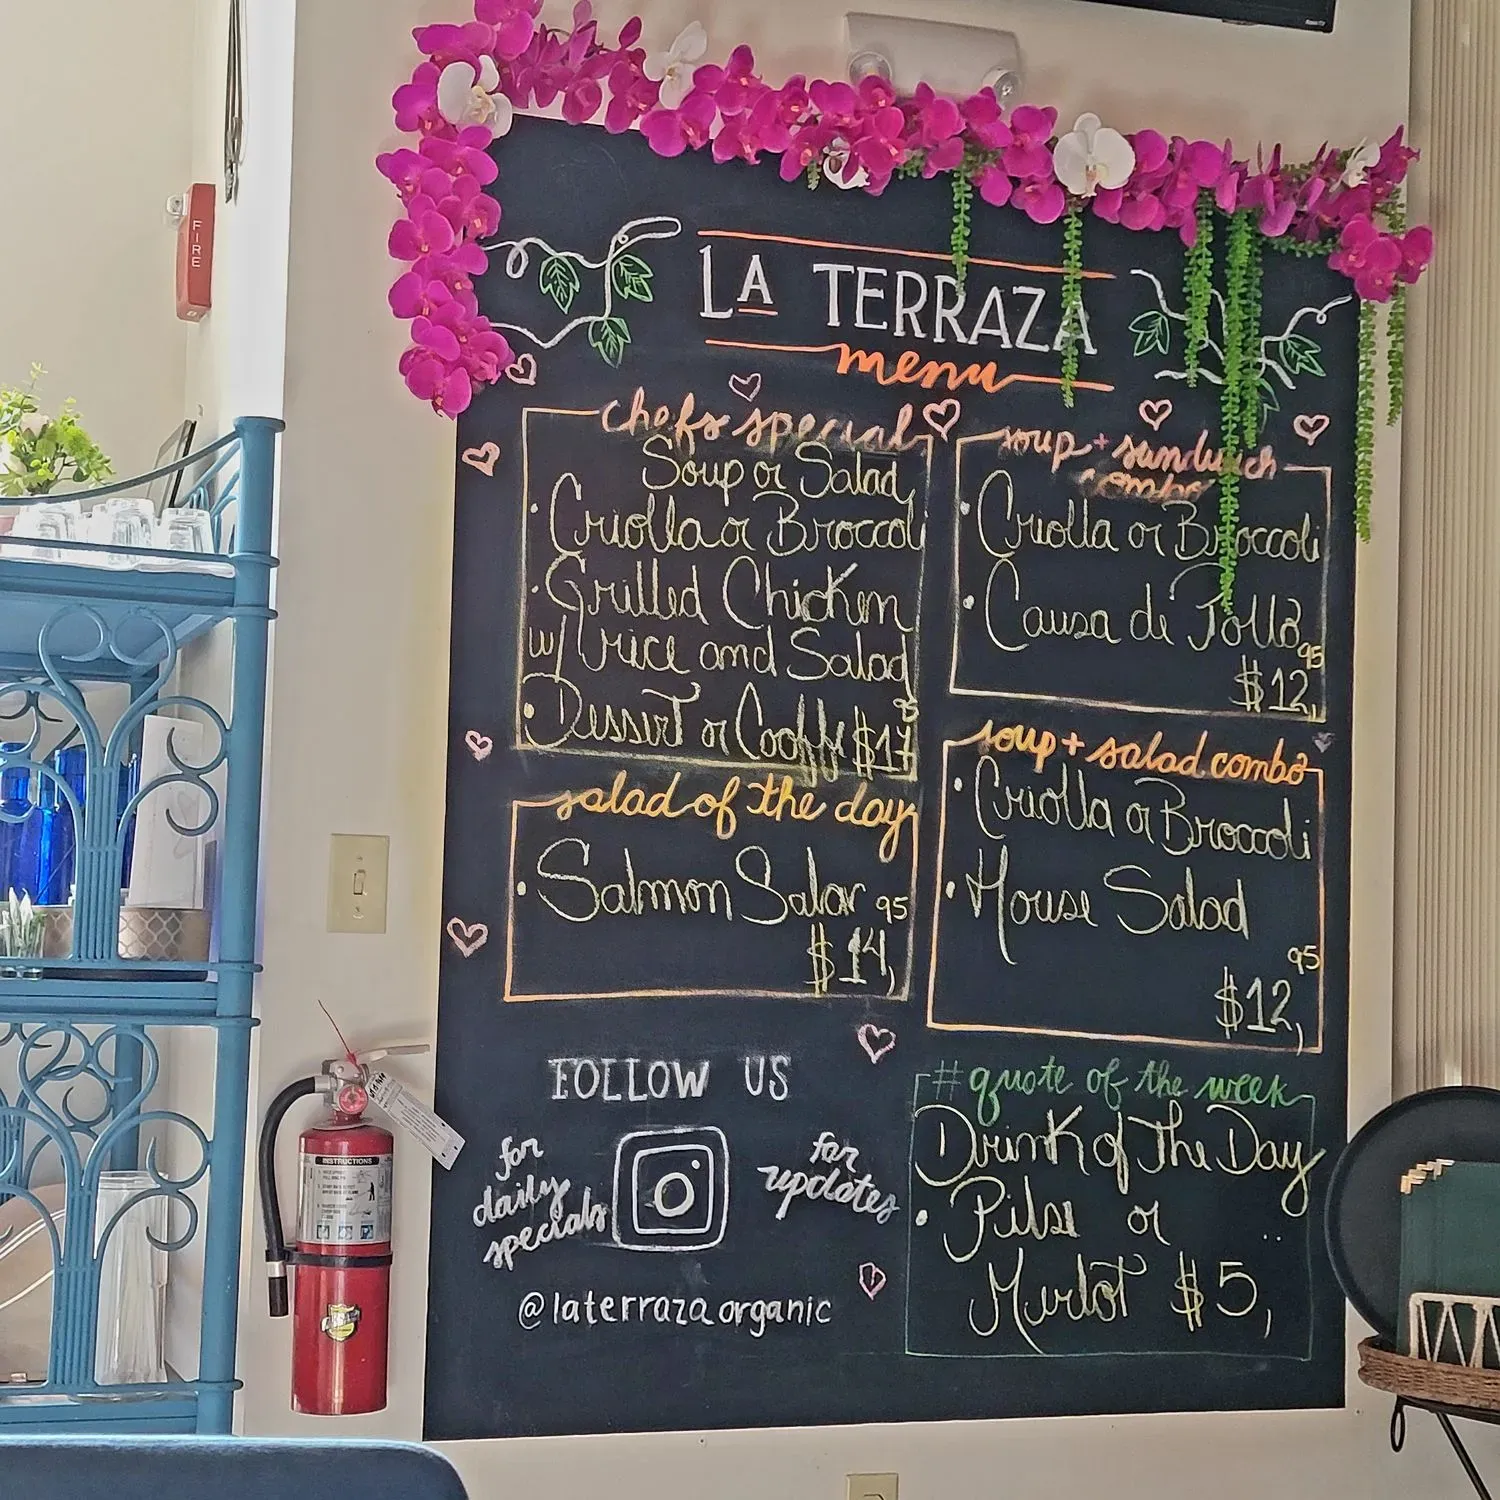 FIRE
LA TERRAZA
menu
chefs special
Soup or Salad
· Criolla or Broccoli
· Grilled Chicken
w/ rice and Salad
· Dessert or Cooffe $17,95
soup + sandwich
combo
· Criolla or Broccoli
· Causa de Pollo
$12,95
salad of the day
· Salmon Salar
$14,95
soup + salad combo
· Criolla or Broccoli
· House Salad
$12,95
FOLLOW US
for
daily
specials
for
updates
@laterrazaorganic
#quote of the week
Drink of The Day
· Pilse or
Merlot $5,
INSTRUCTIONS